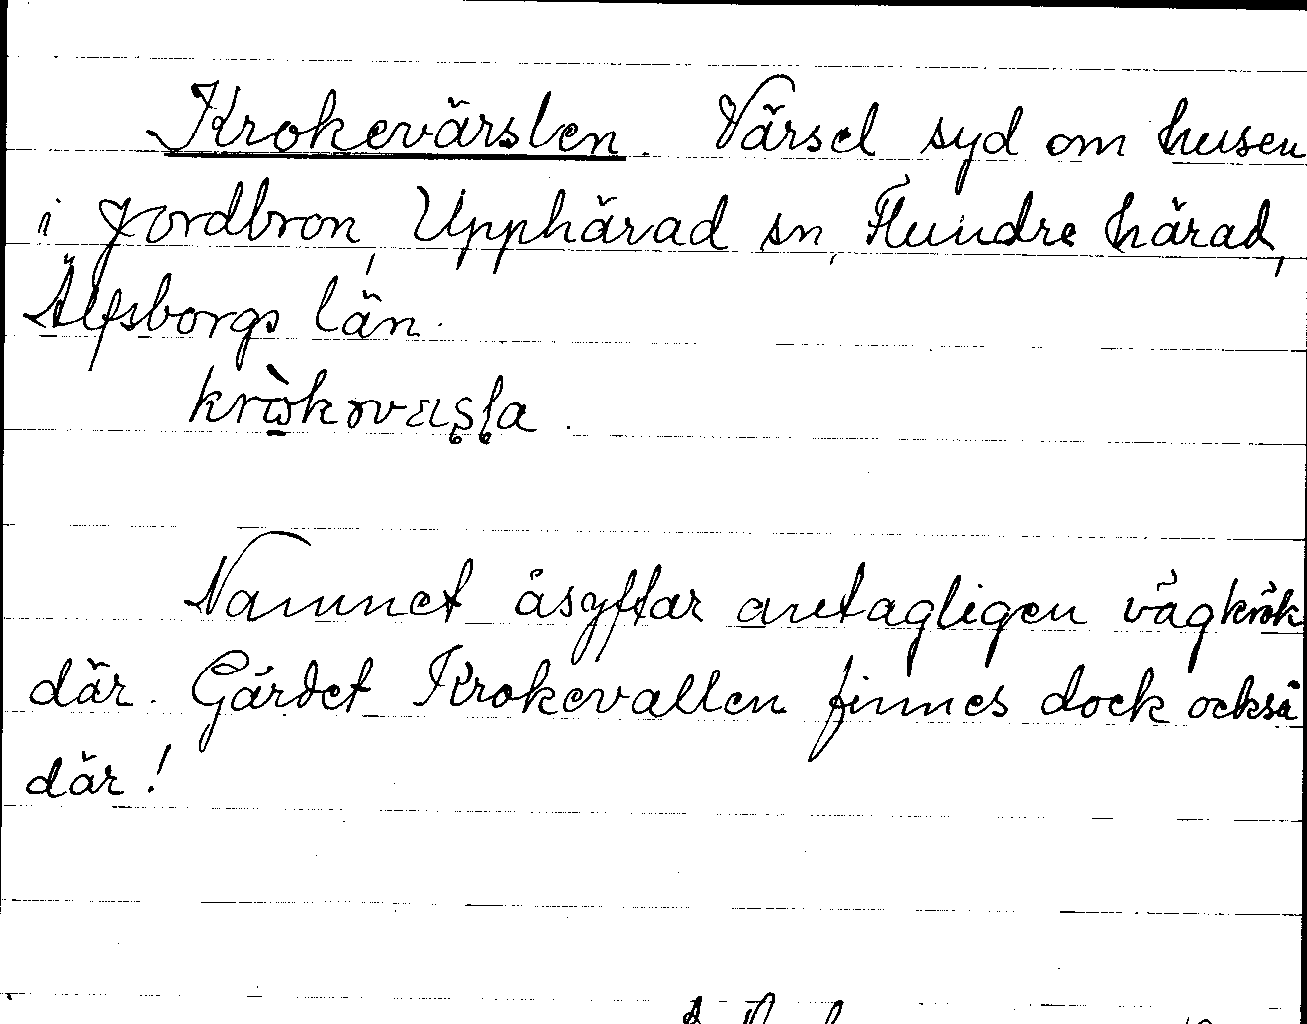 Krokevärslen. Värsel syd om husen
i Jordbron, Upphärad sn, Flundre härad,
Älfsborgs län.
Namnet åsyftar antagligen vägkrök
där. Gärdet Krokevallen finnes dock också
där!